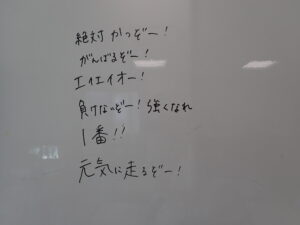 絶対かつぞー!
がんばるぞー!
エイエイオー!
負けないぞー!強くなれ
1番!!
元気に走るぞー!